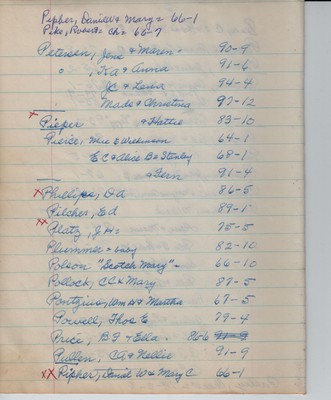 Pipher, Daniel & Mary = 66-1
Pike, Robert = Ch = 66-7
Petersen, Jens & Maren - 90-9
" , & Anna 91-6
JC & Lena 94-4
Mads & Christina 97-12
x Pieper & Hattie 83-10
Pierce, Wilkinson 64-1
EC & Alice B & Stanley 68-1
& Fern 91-4
x Phillips, DA 86-5
Pilcher, Ed 89-1
xx Platz, JH = 75-5
Plummer & baby 82-10
Polson "Scotch Mary" - 66-10
Pollock, CC & Mary 87-5
Pontzius, Wm H & Martha 67-5
Powell, Thos E 79-4
Price, BF & Ella -
Pullen, CA & Nellie 91-9
xx Pipher, Daniel W & Mary C 66-1